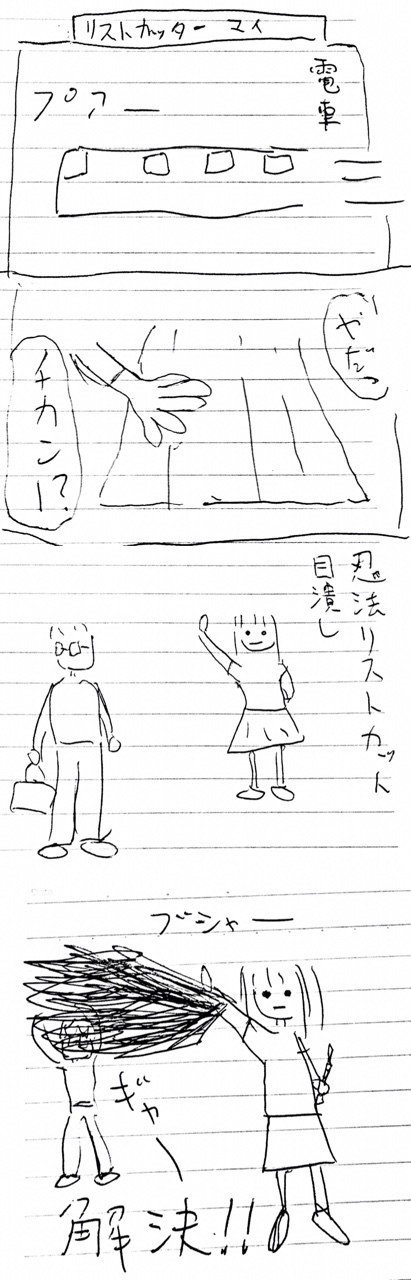 リストカッター マイ
電車
プアー
やだっ
チカン!?
忍法リストカット
目潰し
ブシャー
ギャー
解決!!